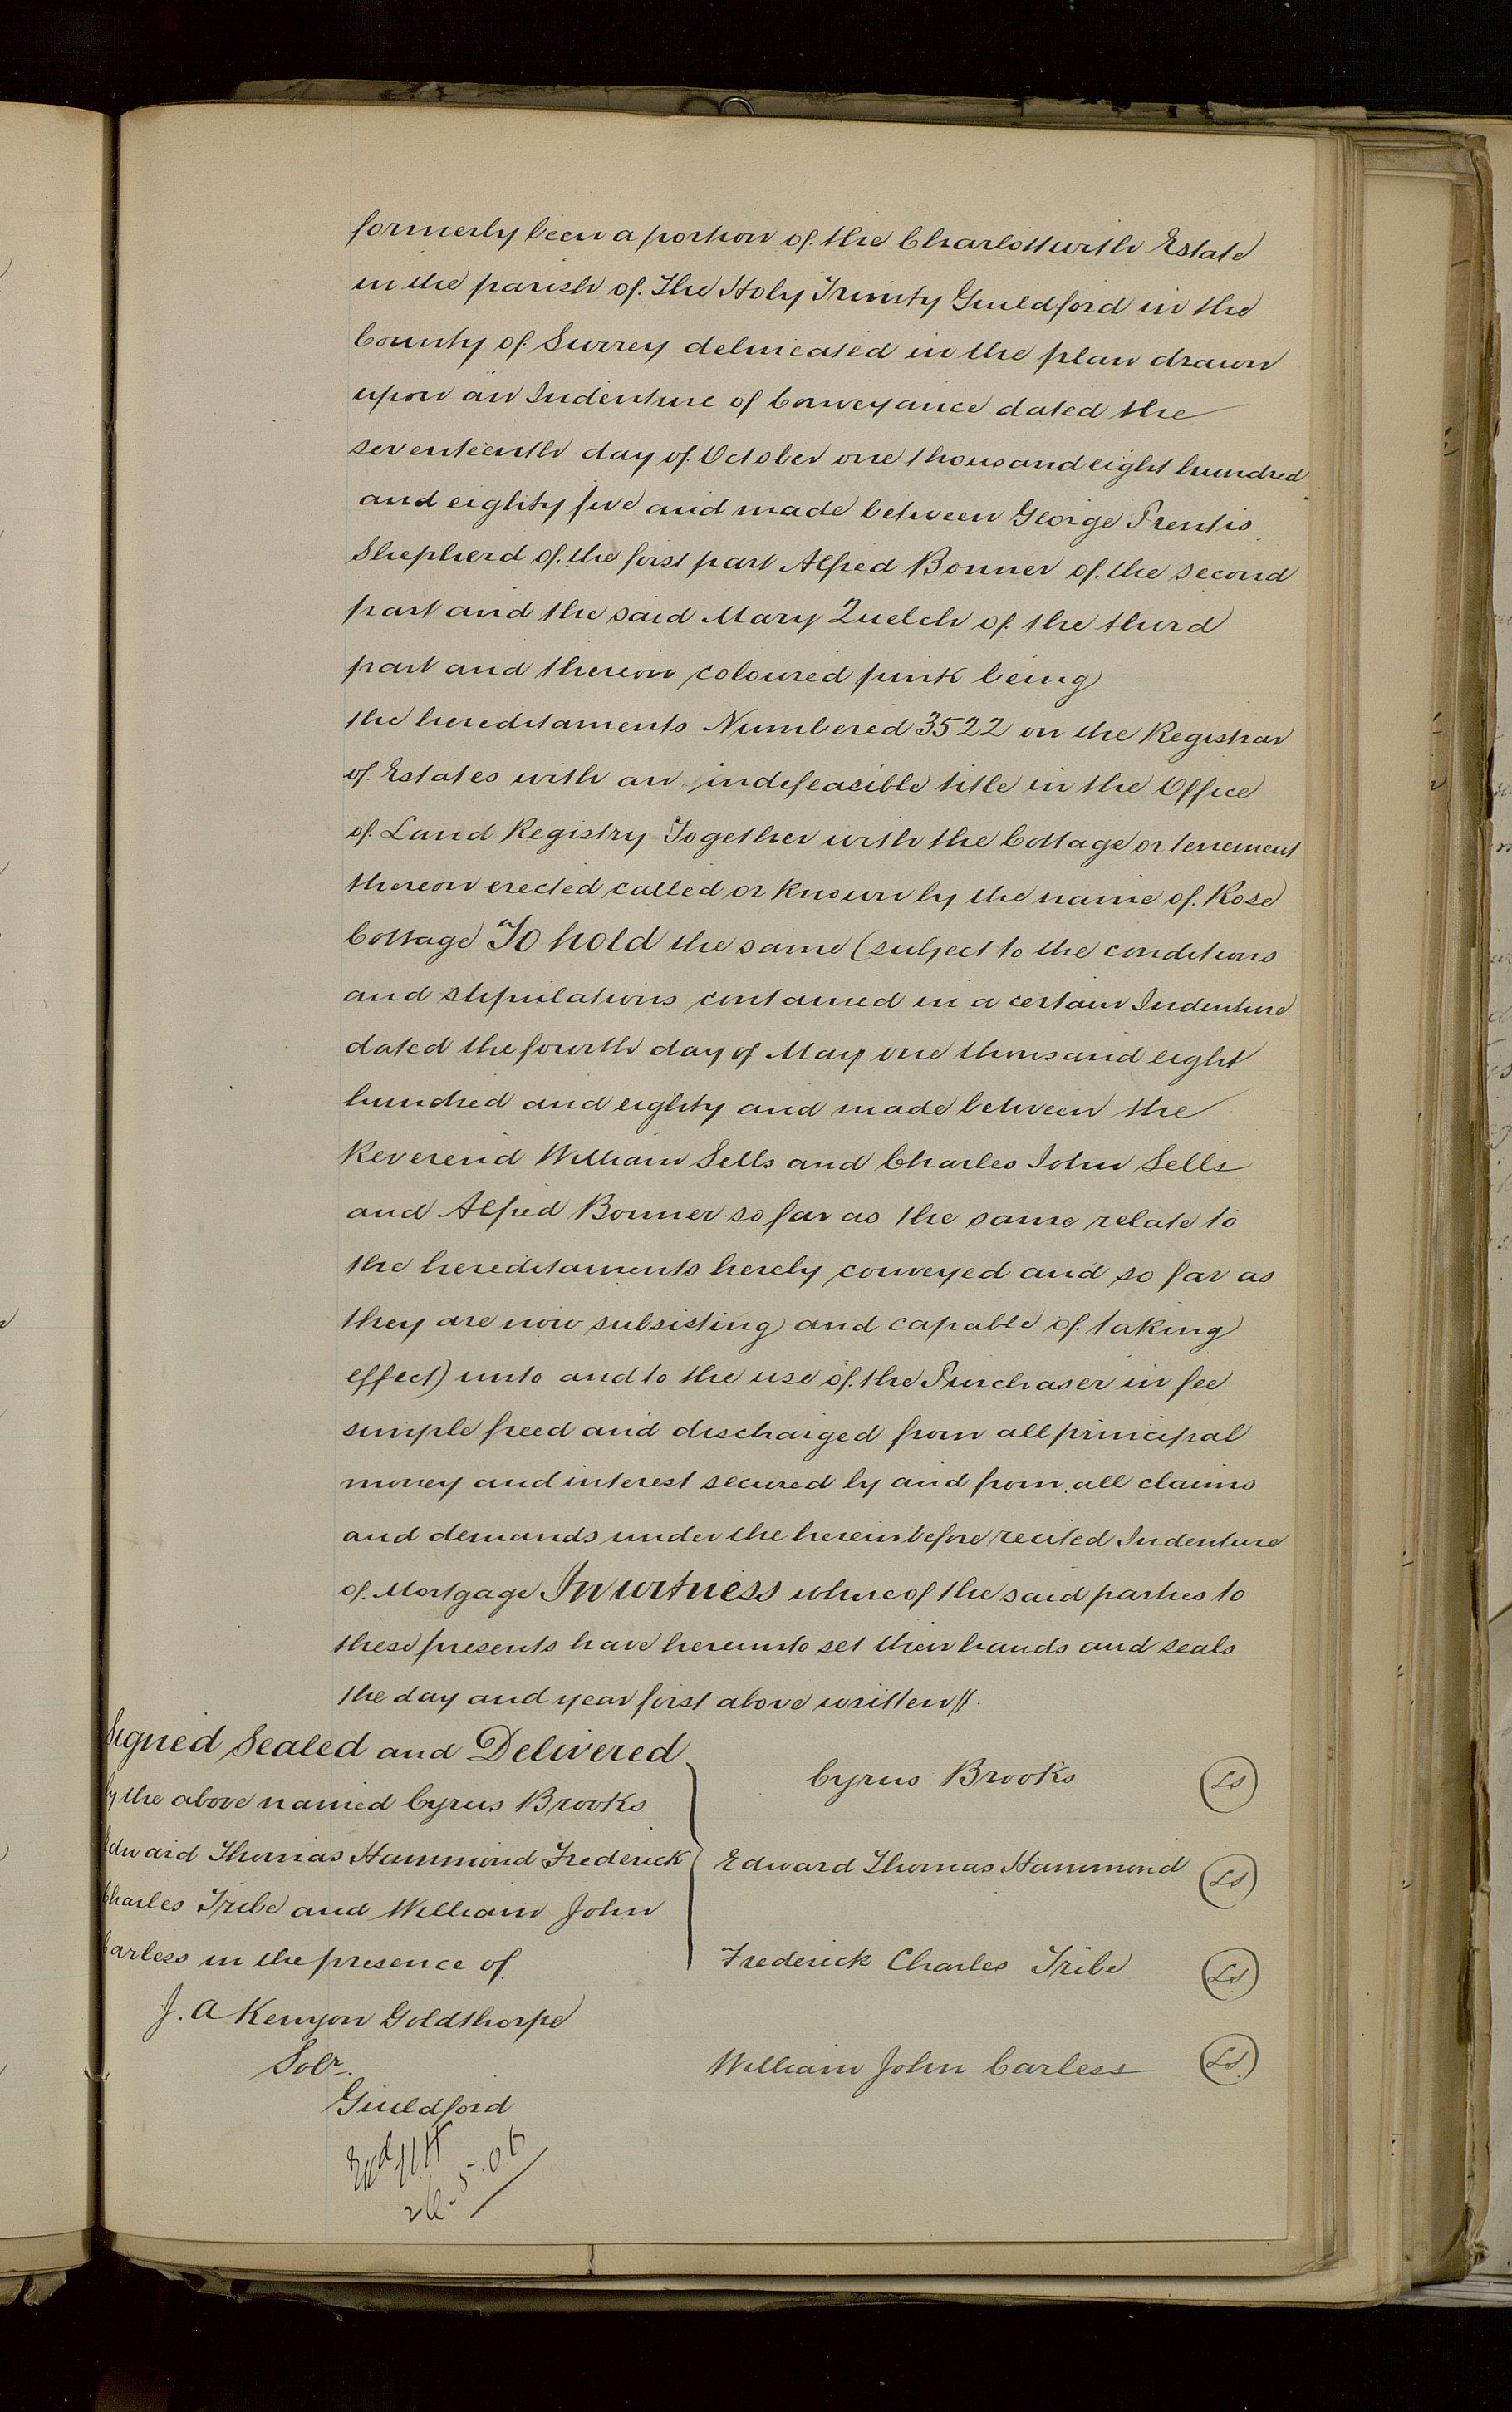 formerly been a portion of the Charlottwith Estate
in the parish of The Holy Trinity Guildford in the
County of Surrey delineated in the plan drawn
upon an Indenture of Conveyance dated the
seventeenth day of October one thousand eight hundred
and eighty five and made between George Prentis
Shepherd of the first part Alfred Bonner of the second
part and the said Mary Quelch of the third
part and thereon coloured pink being
the hereditaments Numbered 3522 on the Registrar
of Estates with an indefeasible title in the Office
of Land Registry Together with the Cottage or tenement
thereon erected called or known by the name of Rose
Cottage To hold the same (subject to the conditions
and stipulations contained in a certain Indenture
dated the fourth day of May one thousand eight
hundred and eighty and made between the
Reverend William Sells and Charles John Sells
and Alfred Bonner so far as the same relate to
the hereditaments hereby conveyed and so far as
they are now subsisting and capable of taking
effect) unto and to the use of the Purchaser in fee
simple freed and discharged from all principal
money and interest secured by and from all claims
and demands under the hereinbefore recited Indenture
of Mortgage In witness whereof the said parties to
these presents have hereunto set their hands and seals
the day and year first above written //.
Signed Sealed and Delivered
by the above named Cyrus Brooks
Edward Thomas Hammond Frederick
Charles Tribe and William John
Carless in the presence of
J. A Kenyon Goldthorpe
Solr.
Guildford
26.5.06
Cyrus Brooks LS
Edward Thomas Hammond LS
Frederick Charles Tribe LS
William John Carless LS